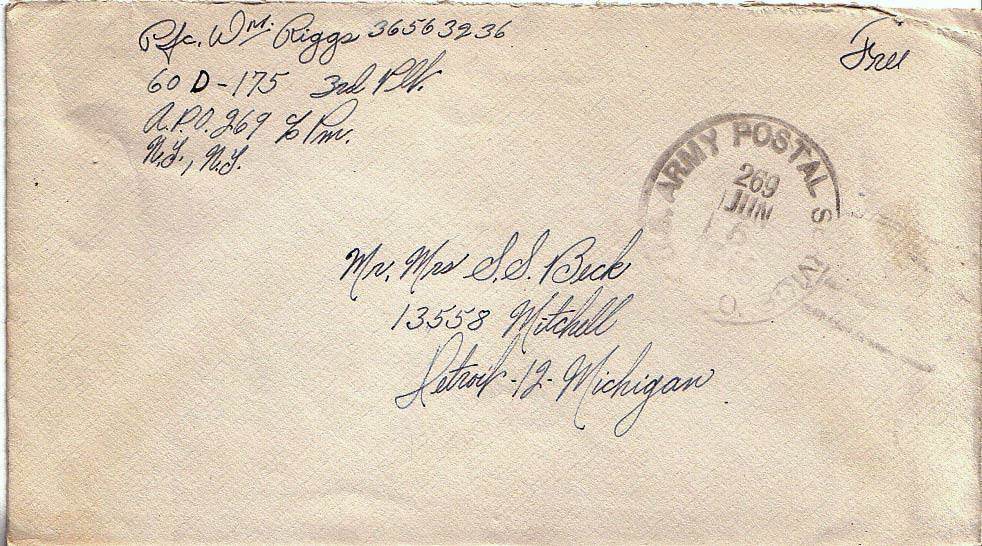 Pfc. Wm. Riggs 36563236
60 D-175 3rd Plt.
A.P.O. 269 % Pm.
N.Y., N.Y.
Free
ARMY POSTAL
269
JUN
6
Mr. Mrs S.S. Beck
13558 Mitchell
Detroit -12- Michigan